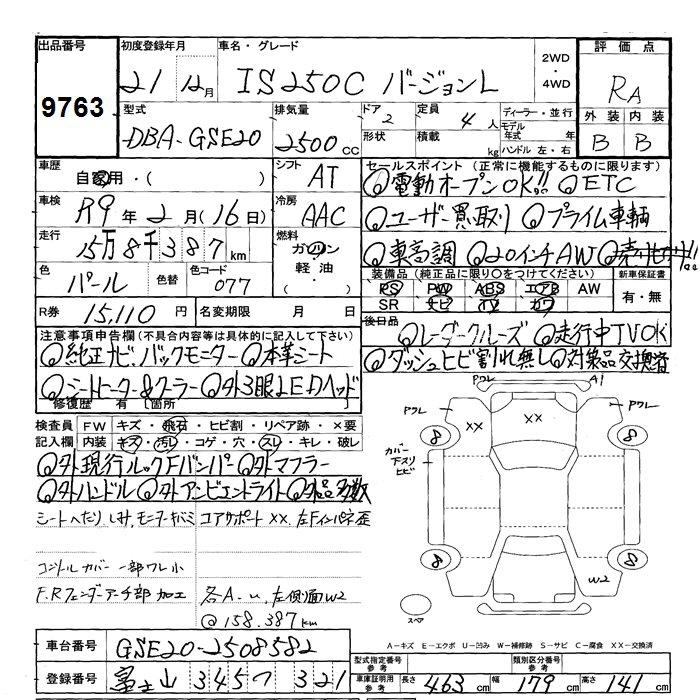 出品番号 初度登録年月 車名・グレード 2WD ・ 4WD 評価点
9763 21 12月 IS250C バージョンL RA
外装 内装
B B
型式 排気量 ドア 定員 ディーラー・並行
DBA-GSE20 2500cc 2 4人 モデル年式 年
形状 積載 kg ハンドル 左・右
車歴 自家用・( ) シフト AT
セールスポイント (正常に機能するものに限ります)
◎電動オープンOK!! ◎ETC
車検 R9年2月(16日) 冷房 AAC
◎ユーザー買取り ◎プライム車輌
走行 15万8千387km 燃料 ガソリン 軽油 ・( )
◎車高調 ◎20インチAW
色 パール 色替 色コード 077
装備品 (純正品に限り○をつけてください) 新車保証書
PS PW ABS エアB AW 有・無
SR ナビ カワ
R券 15,110円 名変期限 月 日
後日品 ◎レーダークルーズ ◎走行中TVOK
◎ダッシュヒビ割れ無し ◎対策品交換済
注意事項申告欄 (不具合内容等は具体的に記入して下さい)
◎純正ナビ.バックモニター ◎本革シート
◎シートヒーター&クーラー ◎外3眼LEDヘッド
修復歴 有 [箇所
検査員記入欄 FW キズ・飛石・ヒビ割・リペア跡・×要
内装 キズ・汚レ・コゲ・穴・スレ・キレ・破レ
◎外現行ルックFバンパー ◎外マフラー
◎外ハンドル ◎外アンビエントライト ◎外品多数
シートへたり シミ,モニターキバミ コアサポートXX.左Fインパネ歪
コントロールカバー一部ワレ小
F.Rフェンダーアーチ部加工 各A~u.左側面W2
@158.387km
PワレA1
Pワレ XX XX Pワレ
8 8
カバー下スリヒビ
8 8
W2
スペア
A-キズ E-エクボ U-凹み W-補修跡 S-サビ C-腐食 XX-交換済
車台番号 GSE20-2508582
型式指定番号 参考 類別区分番号 参考
登録番号 富士山 345 321
車庫証明用 参考 長さ 463cm 幅 179cm 高さ 141cm